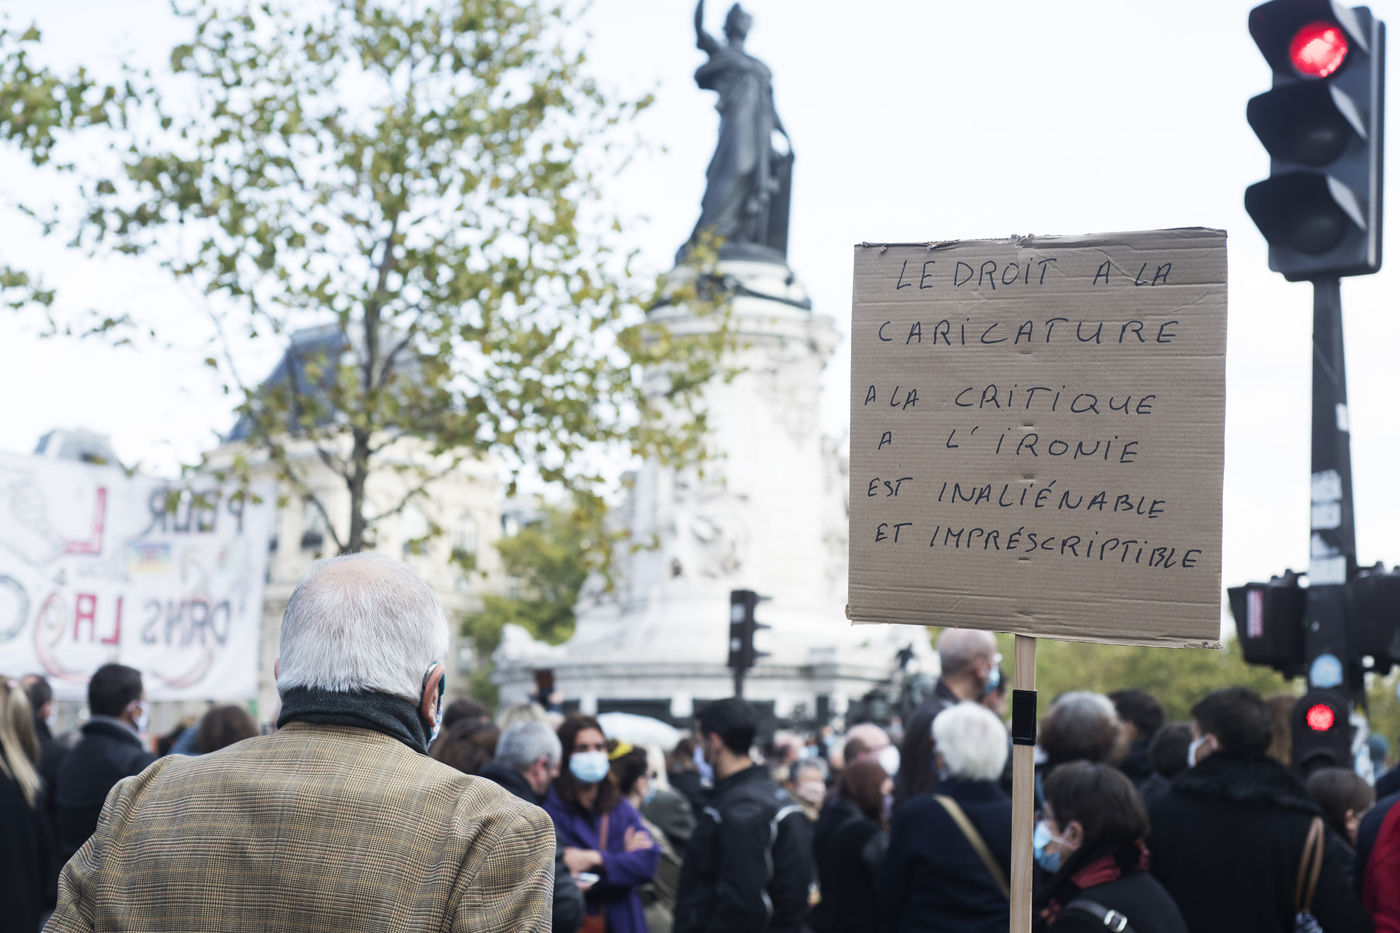 LE DROIT A LA
CARICATURE
A LA CRITIQUE
A L'IRONIE
EST INALIÉNABLE
ET IMPRÉSCRIPTIBLE
DANS LA